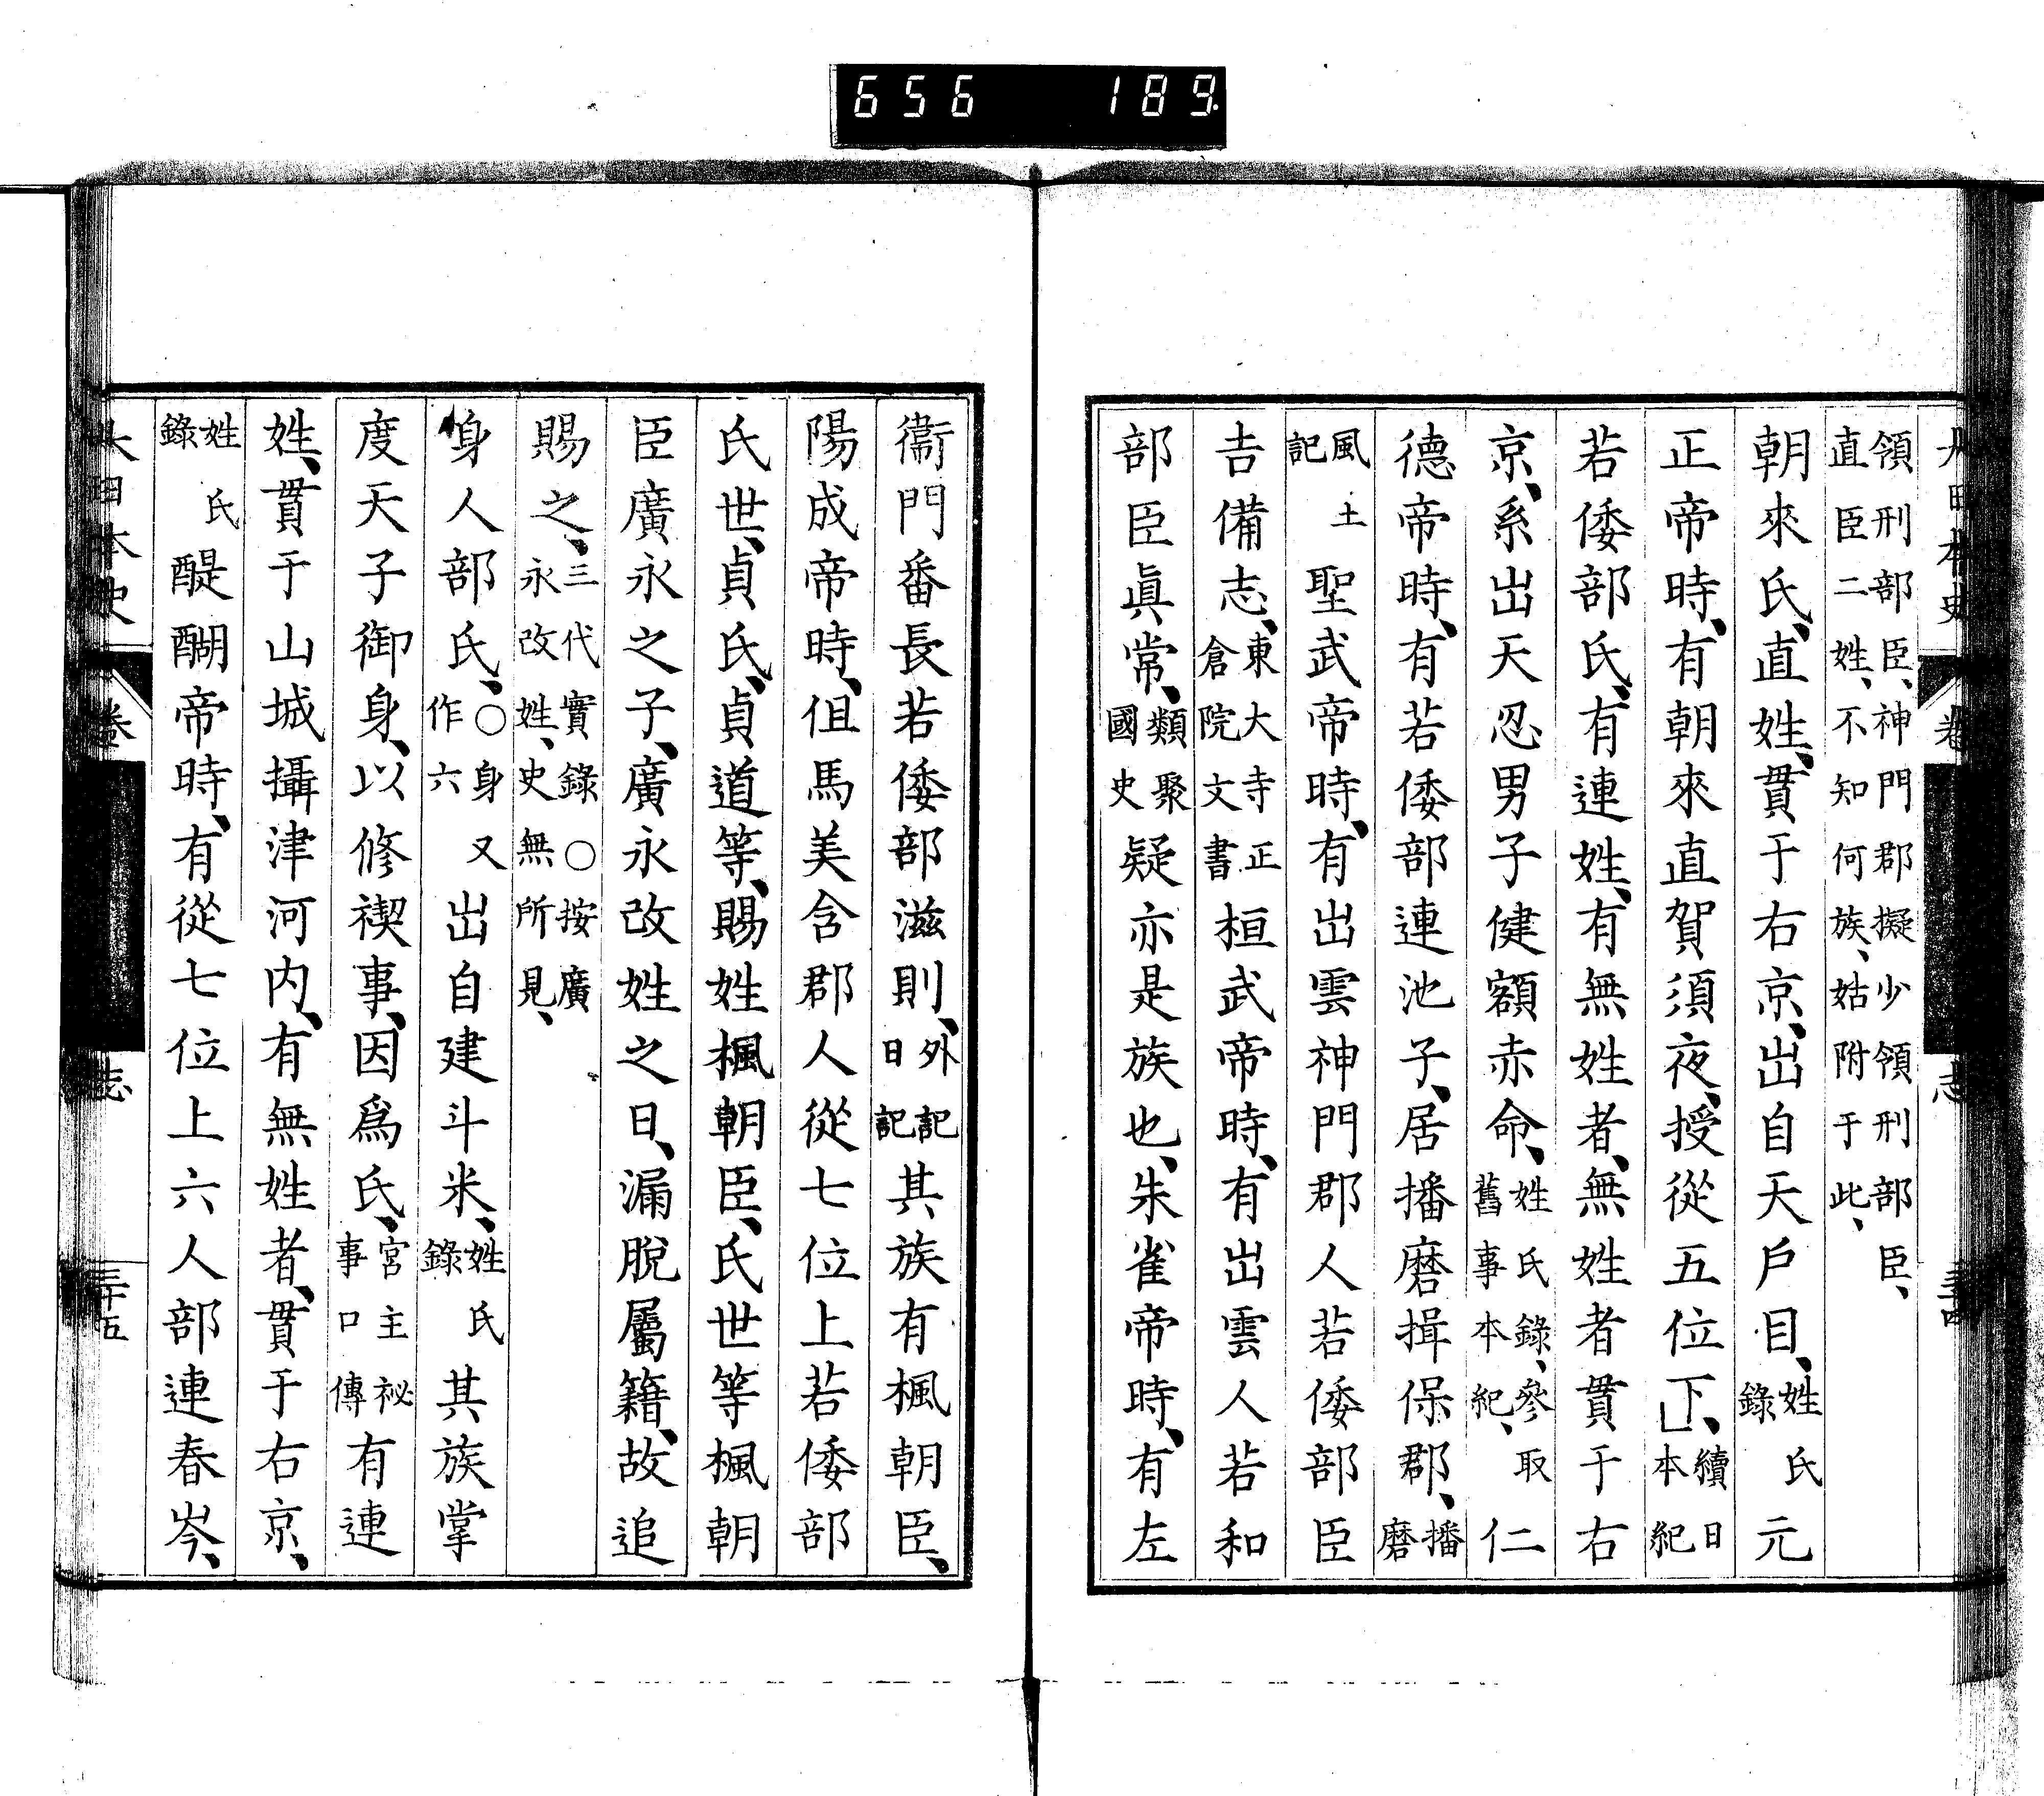 656 189
領刑部臣、神門郡擬少領刑部臣、
直臣二姓、不知何族、姑附于此、
朝來氏、直姓、貫于右京、出自天戶目、姓氏錄元
正帝時、有朝來直賀須夜、授從五位下、續日本紀
若倭部氏、有連姓、有無姓者、無姓者貫于右
京、系出天忍男子健額赤命、姓氏錄、參取舊事本紀、仁
德帝時、有若倭部連池子、居播磨揖保郡、播磨
風土記聖武帝時、有出雲神門郡人若倭部臣
吉備志、東大寺正倉院文書桓武帝時、有出雲人若和
部臣眞常、類聚國史疑亦是族也、朱雀帝時、有左
衞門番長若倭部滋則、外記日記其族有楓朝臣、
陽成帝時、伹馬美含郡人從七位上若倭部
氏世、貞氏、貞道等、賜姓楓朝臣、氏世等楓朝
臣廣永之子、廣永改姓之日、漏脫屬籍、故追
賜之、三代實錄○按廣永改姓、史無所見、
身人部氏、○身又作六出自建斗米、姓氏錄其族掌
度天子御身、以修禊事、因爲氏、宮主祕事口傳有連
姓、貫于山城攝津河内、有無姓者、貫于右京、
姓氏錄醍醐帝時、有從七位上六人部連春岑、
大日本史 卷 志 三十五